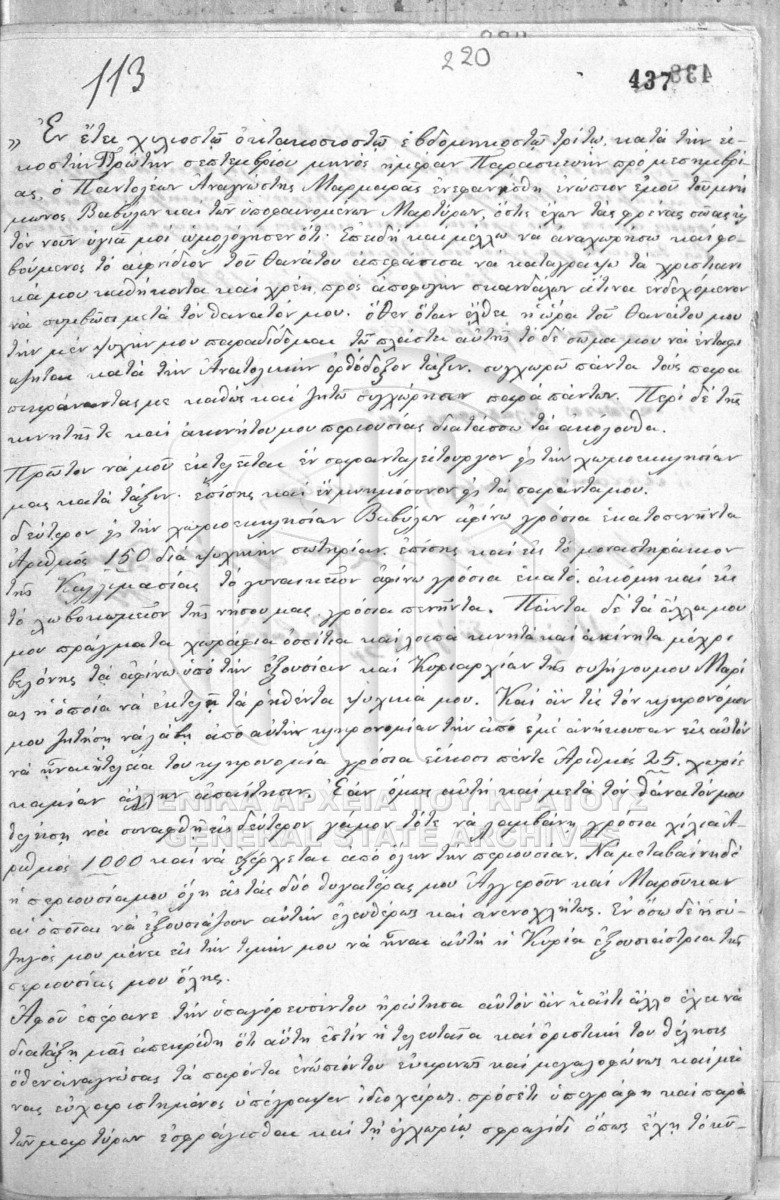 113
220
437
438
„ Ἐν ἔτει χιλιοστῷ ὀκτακοσιοστῷ ἑβδομηκοστῷ τρίτῳ, κατὰ τὴν εἰ-
κοστὴν Πρώτην σεπτεμβρίου μηνὸς ἡμέραν Παρασκευὴν προ μεσημβρί-
ας, ὁ Παντολέων Ἀναγνώστης Μαρμαρᾶς ἐνεφανίσθη ἐνώπιον ἐμοῦ τοῦ μνή
μωνος Βαβύλων καὶ τῶν ὑποφαινομένων Μαρτύρων, ὅστις ἔχων τὰς φρένας σώας κ
τὸν νοῦν ὑγιᾶ μοὶ ὡμολόγησεν ὅτι· Ἐπειδὴ καὶ μέλλω νὰ ἀναχωρήσω καὶ φο-
βούμενος τὸ αιφνίδιον τοῦ θανάτου ἀπεφάσισα νὰ καταγράψω τὰ χριστιανι
κά μου καθήκοντα καὶ χρέη, πρὸς ἀποφυγὴν σκανδάλων ἅτινα ἐνδεχόμενον
νὰ συμβῶσι μετὰ τὸν θανατόν μου. ὅθεν ὅταν ἔλθει ἡ ὥρα τοῦ θανάτου μου
τὴν μὲν ψυχήν μου παραδίδομαι τῷ πλάστῃ αὐτῆς τὸ δὲ σῶμα μου νὰ ἐνταφι
ασθῆται κατὰ τὴν Ἀνατολικὴν ὀρθόδοξον τάξιν. συγχωρῶ πάντα τοὺς παρα
πικράναντας με καθὼς καὶ ζητῶ συγχώρησιν παρὰ πάντων. Περὶ δὲ τῆς
κινητῆς τε καὶ ἀκινήτου μου περιουσίας διατάσσω τὰ ἀκόλουθα.
Πρῶτον νὰ μοῦ ἐκτελεῖται ἓν σαρανταλείτουργον εἰς τὴν χωριοεκκλησίαν
μας κατὰ τάξιν. ἐπίσης καὶ ἓν μνημόσυνον εἰς τὰ σαράντα μου.
δεύτερον εἰς τὴν χωριοεκκλησίαν Βαβύλων ἀφίνω γρόσια ἑκατοπενῆντα
Ἀριθμός 150 διὰ ψυχικήν σωτηρίαν. ἐπίσης καὶ εἰς τὸ μοναστηράκιον
τῆς Καλλιμασίας τὸ γυναικεῖον ἀφίνω γρόσια ἑκατό. ἀκόμη καὶ εἰς
τὸ λωβοκωμεῖον τῆς νήσου μας γρόσια πενῆντα. Πάντα δὲ τὰ ἄλλα μου
μου πράγματα χωράφια ὀσπίτια καὶ λοιπὰ κινητὰ καὶ ἀκίνητα μέχρι
βελόνης τὰ ἀφίνω ὑπὸ τὴν ἐξουσίαν καὶ Κυριαρχίαν τῆς συζύγου μου Μαρί
ας ἡ ὁποία νὰ ἐκτελῇ τὰ ρηθέντα ψυχικά μου. Καὶ ἄν τις τὸν κληρονόμον
μου ζητήση νὰ λάβη ἀπὸ αὐτὴν κληρονομίαν τὴν ἀπὸ ἐμὲ ἀνήκουσαν εἰς αὐτὸν
νὰ ἦναι ἡ τελεία του κληρονομία γρόσια εἴκοσι πέντε Ἀριθμός 25. χωρίς
καμμίαν ἄλλην ἀπαίτησιν. Ἐὰν ὅμως αὐτὴ καὶ μετὰ τὸν θανατόν μου
θελήση νὰ συναφθῇ εἰς δεύτερον γάμον τότε νὰ λαμβάνη γρόσια χίλια Ἀ-
ριθμός 1000 καὶ νὰ εξέρχεται ἀπὸ ὅλην τὴν περιουσίαν. Νὰ μεταβαίνη δὲ
ἡ περιουσία μου ὅλη εἰς τὰς δύο θυγατέρας μου Ἀγγεροῦν καὶ Μαροῦκαν
αἱ ὁποῖαι νὰ ἐξουσιάζουν αὐτὴν ἐλευθέρως καὶ ἀνενοχλήτως. Ἐν ὅσῳ δὲ ἡ σύ-
ζυγός μου μένει εἰς τὴν τιμήν μου νὰ ἦναι αὐτὴ ἡ Κυρία ἐξουσιάστρια τῆς
περιουσίας μου ὅλης.
Ἀφοῦ ἐπέρανε τὴν ὑπαγόρευσίν του ἠρώτησα αὐτὸν ἂν κᾄτι ἄλλο ἔχει νὰ
διατάξη, μᾶς ἀπεκρίθη ὅτι αὕτη ἐστὶν ἡ τελευταία καὶ ὁριστική του θέλησις
ὅθεν ἀναγνώσας τὰ παρόντα ἐνώπιόν του εὐκρινῶς καὶ μεγαλοφώνως καὶ μεί
νας εὐχαριστημένος ὑπέγραψεν ἰδιοχείρως. πρόσέτι ὑπεγράφη καὶ παρὰ
τῶν μαρτύρων ἐσφράγισθαι καὶ τῇ ἐγχωρίῳ σφραγῖδι ὅπως ἔχῃ τὸ κῦ-
ΓΕΝΙΚΑ ΑΡΧΕΙΑ ΤΟΥ ΚΡΑΤΟΥΣ
GENERAL STATE ARCHIVES